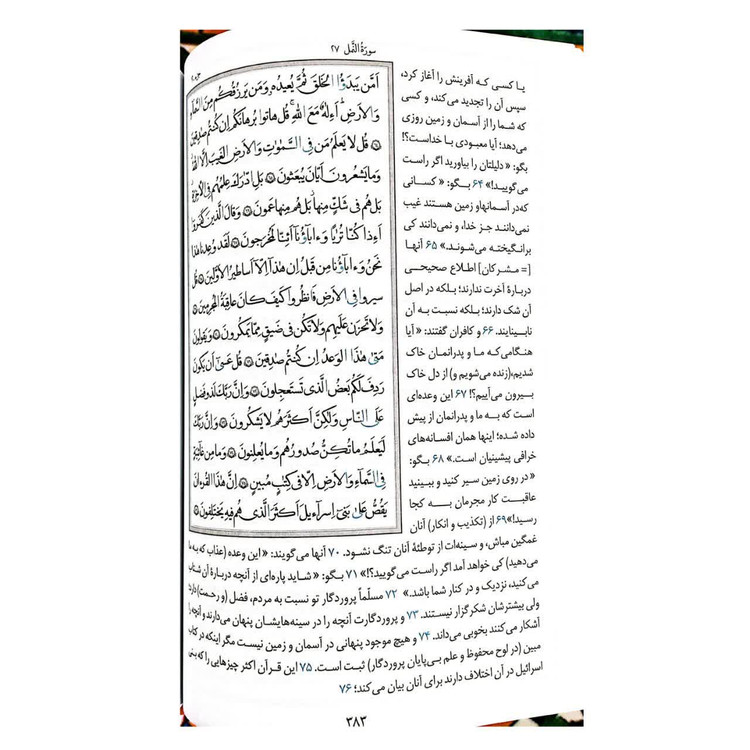 سورة النمل ٢٧
اَمَّن يَبدَؤُا الخَلقَ ثُمَّ يُعيدُه وَمَن يَرزُقُكُم مِنَ السَّماءِ
وَالاَرضِ أَءِلهٌ مَعَ اللهِ قُل هاتوا بُرهانَكُم اِن كُنتُم صدِقينَ
قُل لا يَعلَمُ مَن فِي السَّموتِ وَالاَرضِ الغَيبَ اِلَّا اللهُ
وَما يَشعُرونَ اَيّانَ يُبعَثونَ بَلِ ادّرَكَ عِلمُهُم فِي الآخِرَةِ
بَل هُم في شَكٍّ مِنها بَل هُم مِنها عَمونَ وَقالَ الَّذينَ كَفَروا
أَءِذا كُنّا تُربًا وَءاباؤُنا أَئِنّا لَمُخرَجونَ لَقَد وُعِدنا هذا
نَحنُ وَءاباؤُنا مِن قَبلُ اِن هذا اِلّا اَساطيرُ الاَوَّلينَ قُل
سيروا فِي الاَرضِ فَانظُروا كَيفَ كانَ عاقِبَةُ المُجرِمينَ
وَلا تَحزَن عَلَيهِم وَلا تَكُن في ضَيقٍ مِمّا يَمكُرونَ وَيَقولونَ
مَتى هذَا الوَعدُ اِن كُنتُم صدِقينَ قُل عَسى اَن يَكونَ
رَدِفَ لَكُم بَعضُ الَّذي تَستَعجِلونَ وَاِنَّ رَبَّكَ لَذو فَضلٍ
عَلَى النّاسِ وَلكِنَّ اَكثَرَهُم لا يَشكُرونَ وَاِنَّ رَبَّكَ
لَيَعلَمُ ما تُكِنُّ صُدورُهُم وَما يُعلِنونَ وَما مِن غائِبَةٍ
فِي السَّماءِ وَالاَرضِ اِلّا في كِتبٍ مُبينٍ اِنَّ هذَا القُرءانَ
يَقُصُّ عَلى بَني اِسراءيلَ اَكثَرَ الَّذي هُم فيهِ يَختَلِفونَ
یا کسی که آفرینش را آغاز کرد،
سپس آن را تجدید می‌کند، و کسی
که شما را از آسمان و زمین روزی
می‌دهد؛ آیا معبودی با خداست؟!
بگو: «دلیلتان را بیاورید اگر راست
می‌گویید!» ۶۴ بگو: «کسانی
که‌در آسمانهاو زمین هستند غیب
نمی‌دانند جز خدا، و نمی‌دانند کی
برانگیخته می‌شوند.» ۶۵ آنها
[= مشرکان] اطلاع صحیحی
دربارهٔ آخرت ندارند؛ بلکه در اصل
آن شک دارند؛ بلکه نسبت به آن
نابینایند. ۶۶ و کافران گفتند: «آیا
هنگامی‌که ما و پدرانمان خاک
شدیم،(زنده می‌شویم و) از دل خاک
بیرون می‌آییم؟! ۶۷ این وعده‌ای
است که به ما و پدرانمان از پیش
داده شده؛ اینها همان افسانه‌های
خرافی پیشینیان است.» ۶۸ بگو:
«در روی زمین سیر کنید و ببینید
عاقبت کار مجرمان به کجا
رسید!»۶۹ از (تکذیب و انکار) آنان
غمگین مباش، و سینه‌ات از توطئهٔ آنان تنگ نشود. ۷۰ آنها می‌گویند: «این وعده (عذاب که به ما
می‌دهید) کی خواهد آمد اگر راست می‌گویید؟!» ۷۱ بگو: «شاید پاره‌ای از آنچه دربارهٔ آن شتاب
می‌کنید، نزدیک و در کنار شما باشد.» ۷۲ مسلّماً پروردگار تو نسبت به مردم، فضل (و رحمت) دارد
ولی بیشترشان شکرگزار نیستند. ۷۳ و پروردگارت آنچه را در سینه‌هایشان پنهان می‌دارند و آنچه را
آشکار می‌کنند بخوبی می‌داند. ۷۴ و هیچ موجود پنهانی در آسمان و زمین نیست مگر اینکه در کتاب
مبین (در لوح محفوظ و علم بی‌پایان پروردگار) ثبت است. ۷۵ این قرآن اکثر چیزهایی را که بنی
اسرائیل در آن اختلاف دارند برای آنان بیان می‌کند؛ ۷۶
۳۸۳